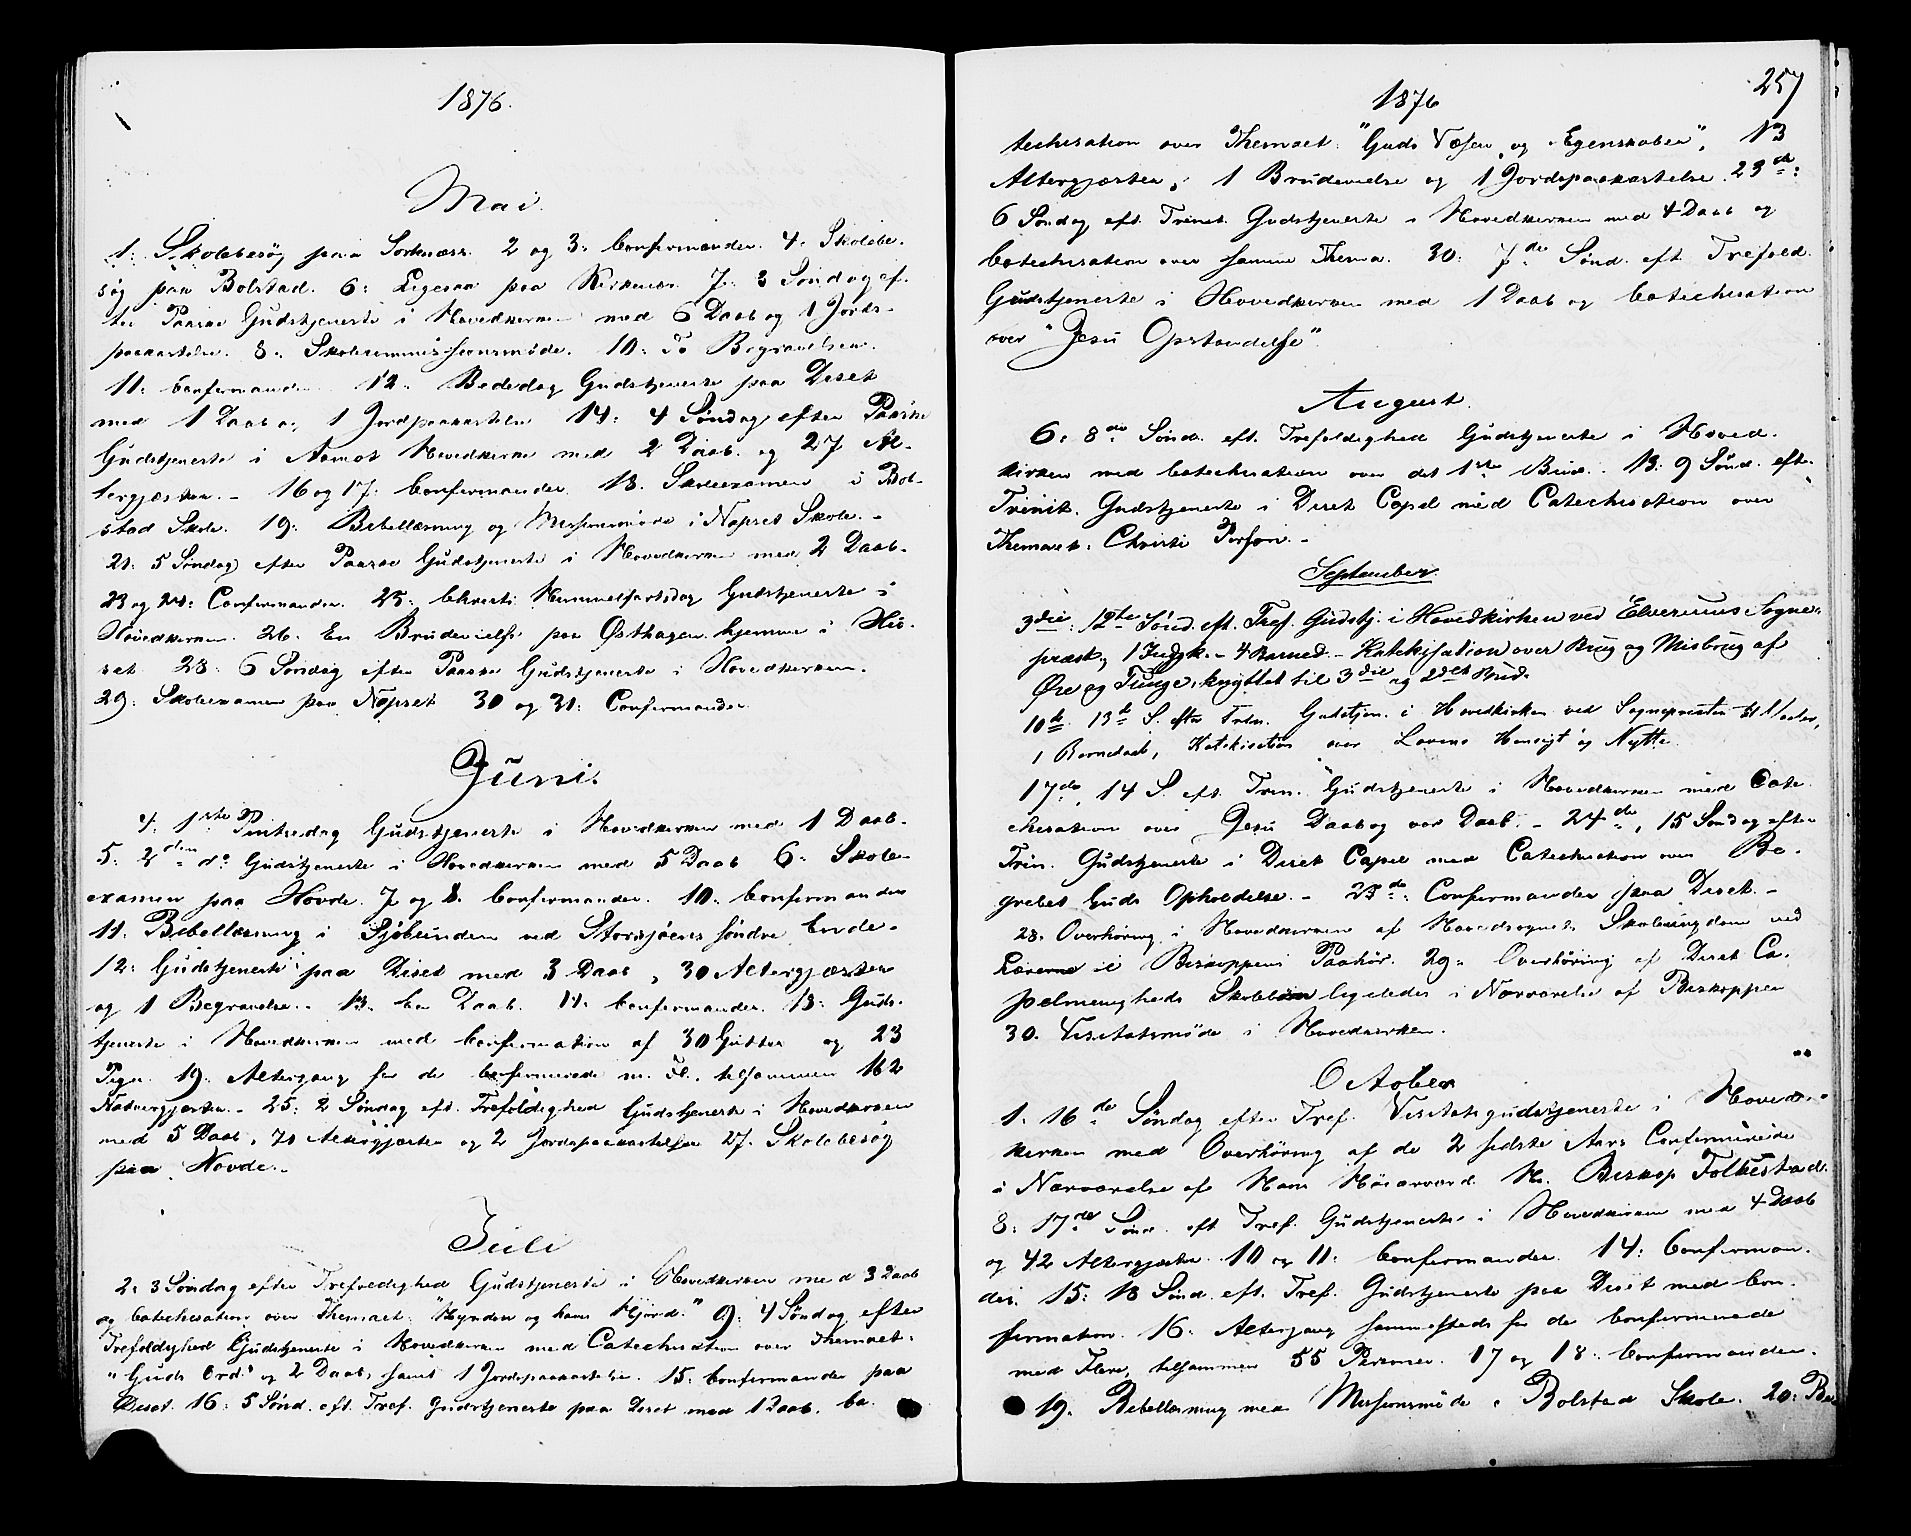 1876.
Mai.
1: Skolebesøg paa Sorknæss. 2 og 3: Confirmander. 4: Skolebe-
søg paa Bolstad. 6: Ligesaa paa Kirkenær. 7: 3 Søndag ef-
ter Paaske Gudstjeneste i Hovedkirken med 6 Daab og 1 Jords-
paakastelse. 8: Skolecommissionsmøde. 10: To Begravelser.
11: Confirmander 12: Bededag Gudstjeneste paa Deset
med 1 Daab og 1 Jordpaakastelse 14: 4 Søndag efter Paaske
Gudstjeneste i Aamot Hovedkirke med 2 Daab og 27 Al-
tergjæster. - 16 og 17: Confirmander. 18. Skoleexamen i Bol-
stad Skole. 19: Bibellæsning og Missionsmøde i Næpset Skole. -
21: 5 Søndag efter Paaske Gudstjeneste i Hovedkirken med 2 Daab.
23 og 24: Confirmander. 25: Christi Himmelfartsdag Gudstjeneste i
Hovedkirken. 26. En Brudevielse paa Østhagen hjemme i Hus-
set 28: 6 Søndag efter Paaske Gudstjeneste i Hovedkirken.
29: Skoleexamen paa Næpset 30 og 31: Confirmander
Juni.
4: 1ste Pintsedag Gudstjeneste i Hovedkirken med 1 Daab.
5: 2den do Gudstjeneste i Hovedkirken med 5 Daab 6: Skole-
examen paa Hovde. 7 og 8. Confirmander. 10: Confirmander
11: Bibellæsning i Sjøbunden ved Storsjøens søndre Ende.
12: Gudstjeneste paa Deset med 3 Daab, 30 Altergjæster
og 1 Begravelse. - 13. En Daab. 14: Confirmander. 18: Guds-
tjeneste i Hovedkirken med Confirmation af 30 Gutter og 23
Piger. 19: Altergang for de Confirmerede m. Fl. tilsammen 162
Nadvergjæster. - 25: 2 Søndag eft. Trefoldighed Gudstjeneste i Hovedkirken
med 5 Daab, 71 Altergjæster og 2 Jordspaakastelser 27. Skolebesøg
paa Hovde. -
Juli
2: 3 Søndag efter Trefoldighed Gudstjeneste i Hovedkirken med 3 Daab
og Catechisation over Themaet: "Hyrden og hans Hjord." 9: 4 Søndag efter
Trefoldighed Gudstjeneste i Hovedkirken med Catechisation over Themaet:
"Guds Ord." og 2 Daab, samt 1 Jordspaakastelse. 15: Confirmander paa
Deset. 16: 5 Sønd. eft. Tref. Gudstjeneste paa Deset med 1 Daab. Ca-
257
1876
techisation over Themaet: "Guds Væsen og Egenskaber", 13
Altergjæster, 1 Brudevielse og 1 Jordspaakastelse. 23de:
6 Søndag eft. Trinit. Gudstjeneste i Hovedkirken med 4 Daab og
Catechisation over samme Thema. 30: 7de Sønd. eft. Trefold.
Gudstjeneste i Hovedkirken med 1 Daab og Catechisation
over "Jesu Opstandelse".
August.
6: 8de Sønd. eft. Trefoldighed Gudstjeneste i Hoved-
kirken med Catechisation over det 1ste Bud. 13: 9 Sønd. eft.
Trinit. Gudstjeneste i Deset Capel med Catechisation over
Themaet: Christi Person. -
September.
3die: 12te Sønd. eft. Tref. Gudstj. i Hovedkirken ved Elverums Sogne-
præst, 1 Jordpk. - 4 Barned. - Katekisation over Brug og Misbrug af
Øre og Tunge, knyttet til 3die og 2det Bud.
10de. 13de S. efter Trin. Gudstjen. i Hovedkirken ved Sognepresten til
1 Barnedaab, Katekisation over Lovens Hensigt og Nytte.
17de, 14 S. eft. Trin. Gudstjeneste i Hovedkirken med Cate-
chisation over Jesu Daab og vor Daab. - 24de, 15 Søndag efter
Trin. Gudstjeneste i Deset Capel med Catechisation over Be-
grebet Guds Opholdelse. - 25de: Confirmander paa Deset. -
28. Overhøring i Hovedkirken af Hovedsognets Skoleungdom ved
Lærerne i Biskoppens Paahør. 29: Overhøring af Deset Ca-
pelmenigheds Skolebørn ligeledes i Nærværelse af Biskoppen
30. Visitatsmøde i Hovedkirken.
October
1. 16de Søndag efter Tref. Visitatsgudstjeneste i Hoved-
kirken med Overhøring af de 2 sidste Aars Confirmerede
i Nærværelse af Hans Høiærværd. Hr. Biskop Folkestad.
8: 17de Sønd. eft Tref. Gudstjeneste i Hovedkirken med 4 Daab
og 42 Altergjæster 10 og 11: Confirmander. 14: Confirman-
der. 15: 18 Sønd. eft. Tref. Gudstjeneste paa Deset med Con-
firmation. 16: Altergang sammesteds for de Confirmerede
med Flere, tilsammen 55 Personer. 17 og 18: Confirmander.
19. Bibellæsning med Missionsmøde i Bolstad Skole. 20: